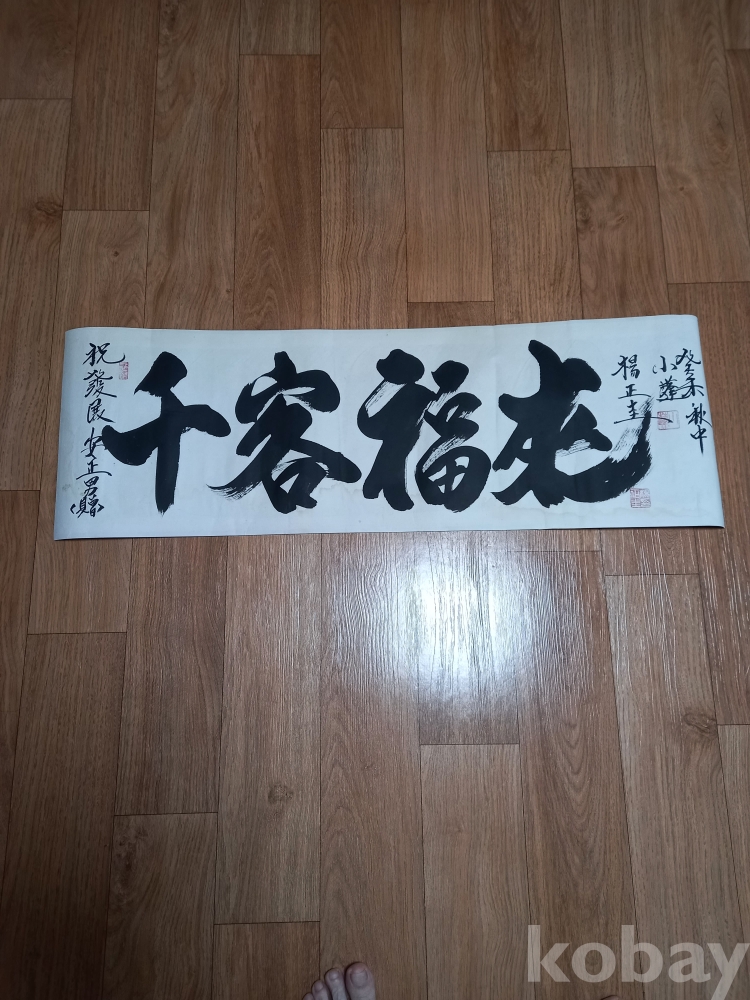 祝 發展 安正
千客福來
楊正圭
小
癸未秋中
kobay